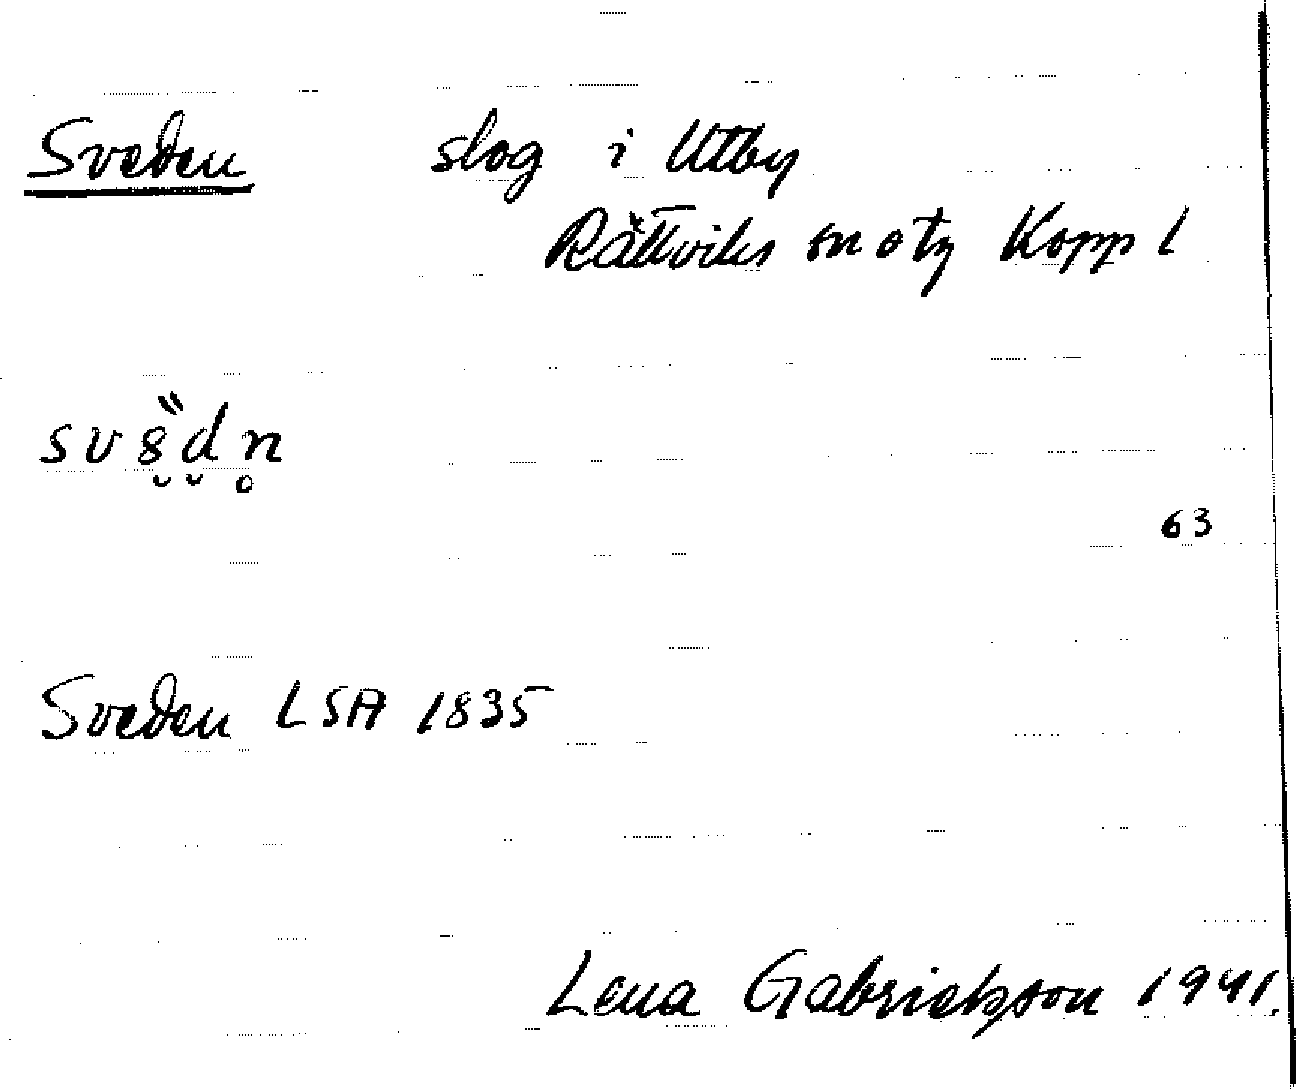 Sveden slog i Utby
Rättviks sn o tg Kopp l
63
Sveden LSA 1835
Lena Gabrielsson 1941.